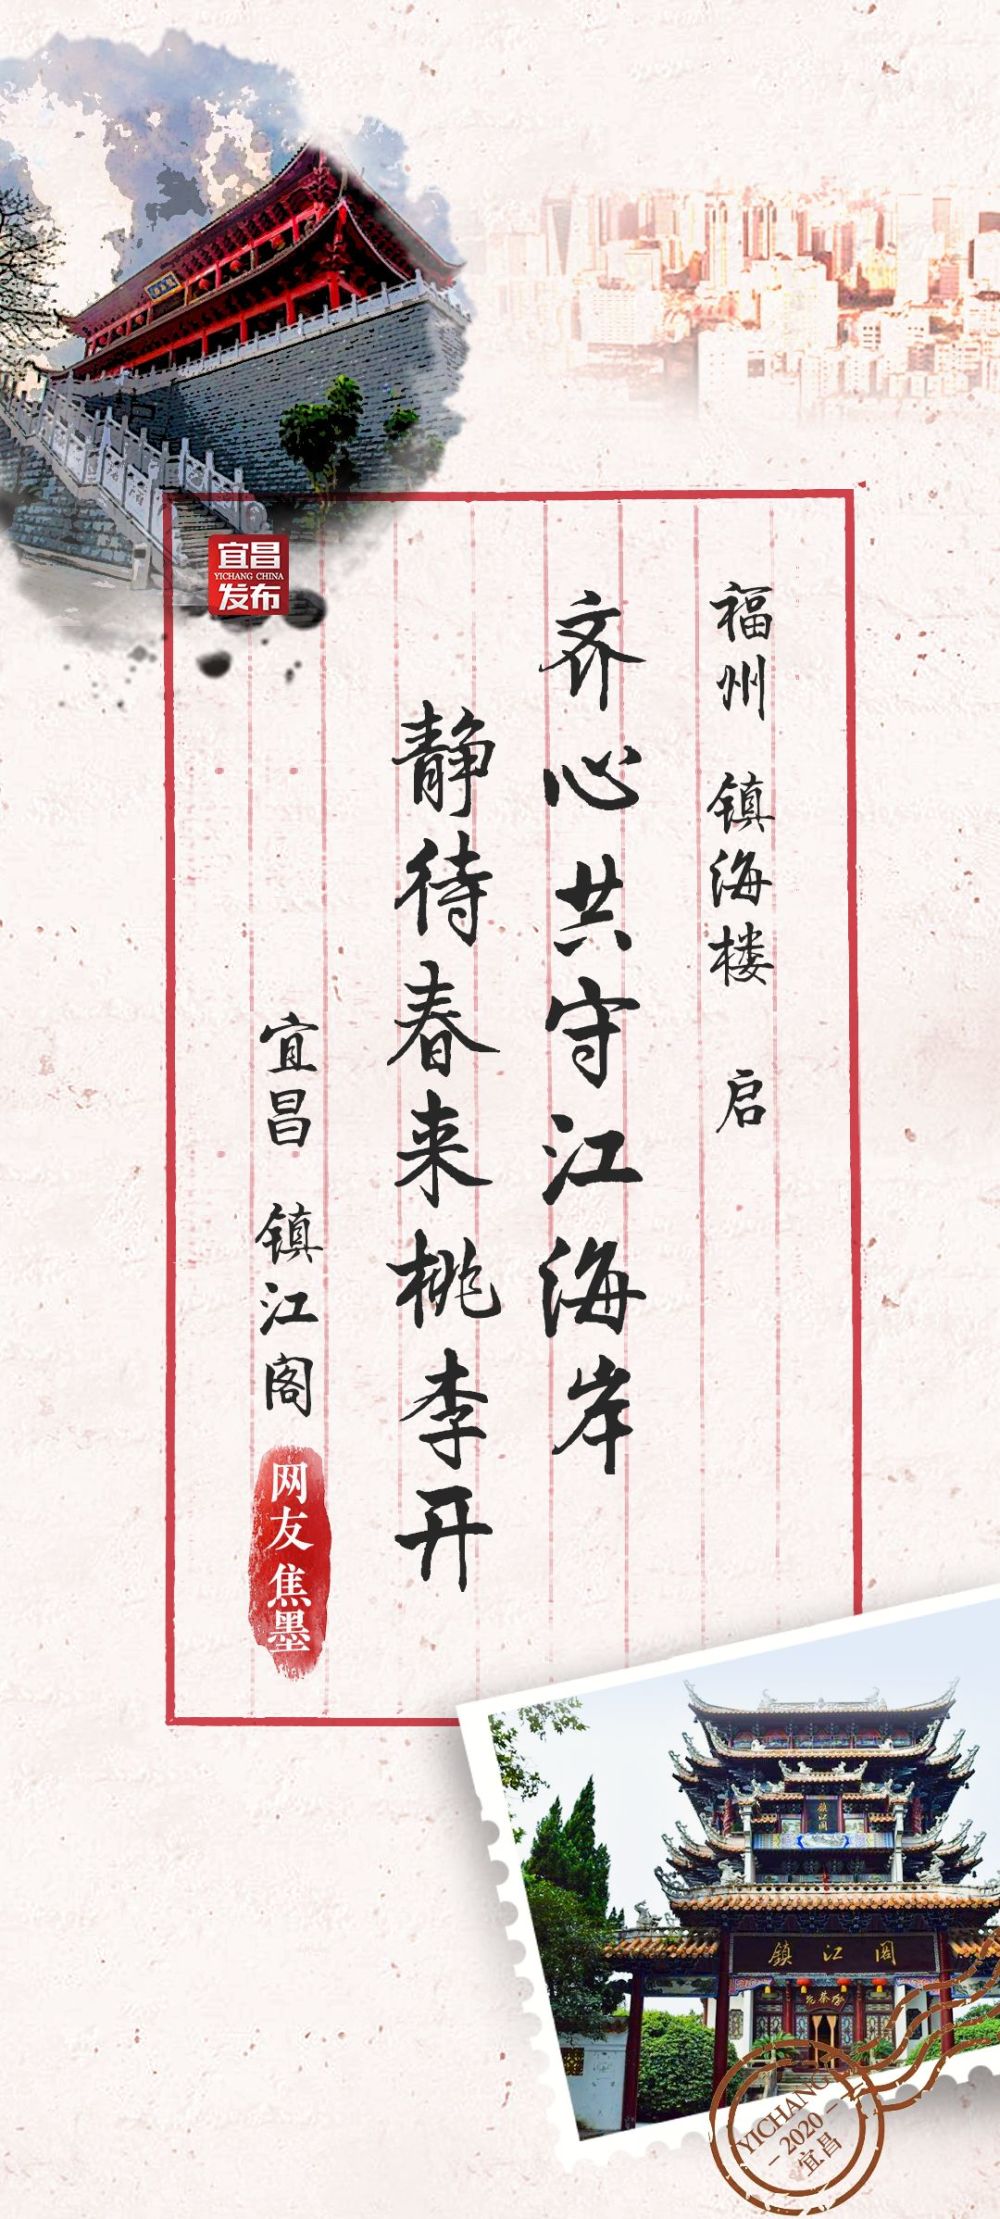 福州 镇海楼 启
齐心共守江海岸
静待春来桃李开
宜昌 镇江阁
网友焦墨
宜昌
YICHANG CHINA
发布
鎮江閣
鎮江閣
YICHANG
-2020-
宜昌